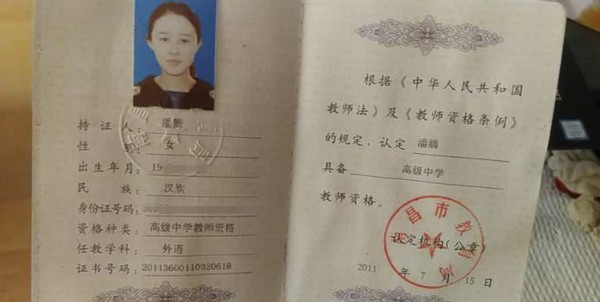 持证人：潘腾
性别：女
出生年月：19
民族：汉族
身份证号码：
资格种类：高级中学教师资格
任教学科：外语
证书号码：20113600110320618
根据《中华人民共和国
教师法》及《教师资格条例》
的规定，认定 潘腾
具备 高级中学
教师资格。
昌市教
认定机构（公章）
2011 年 7 月 15日